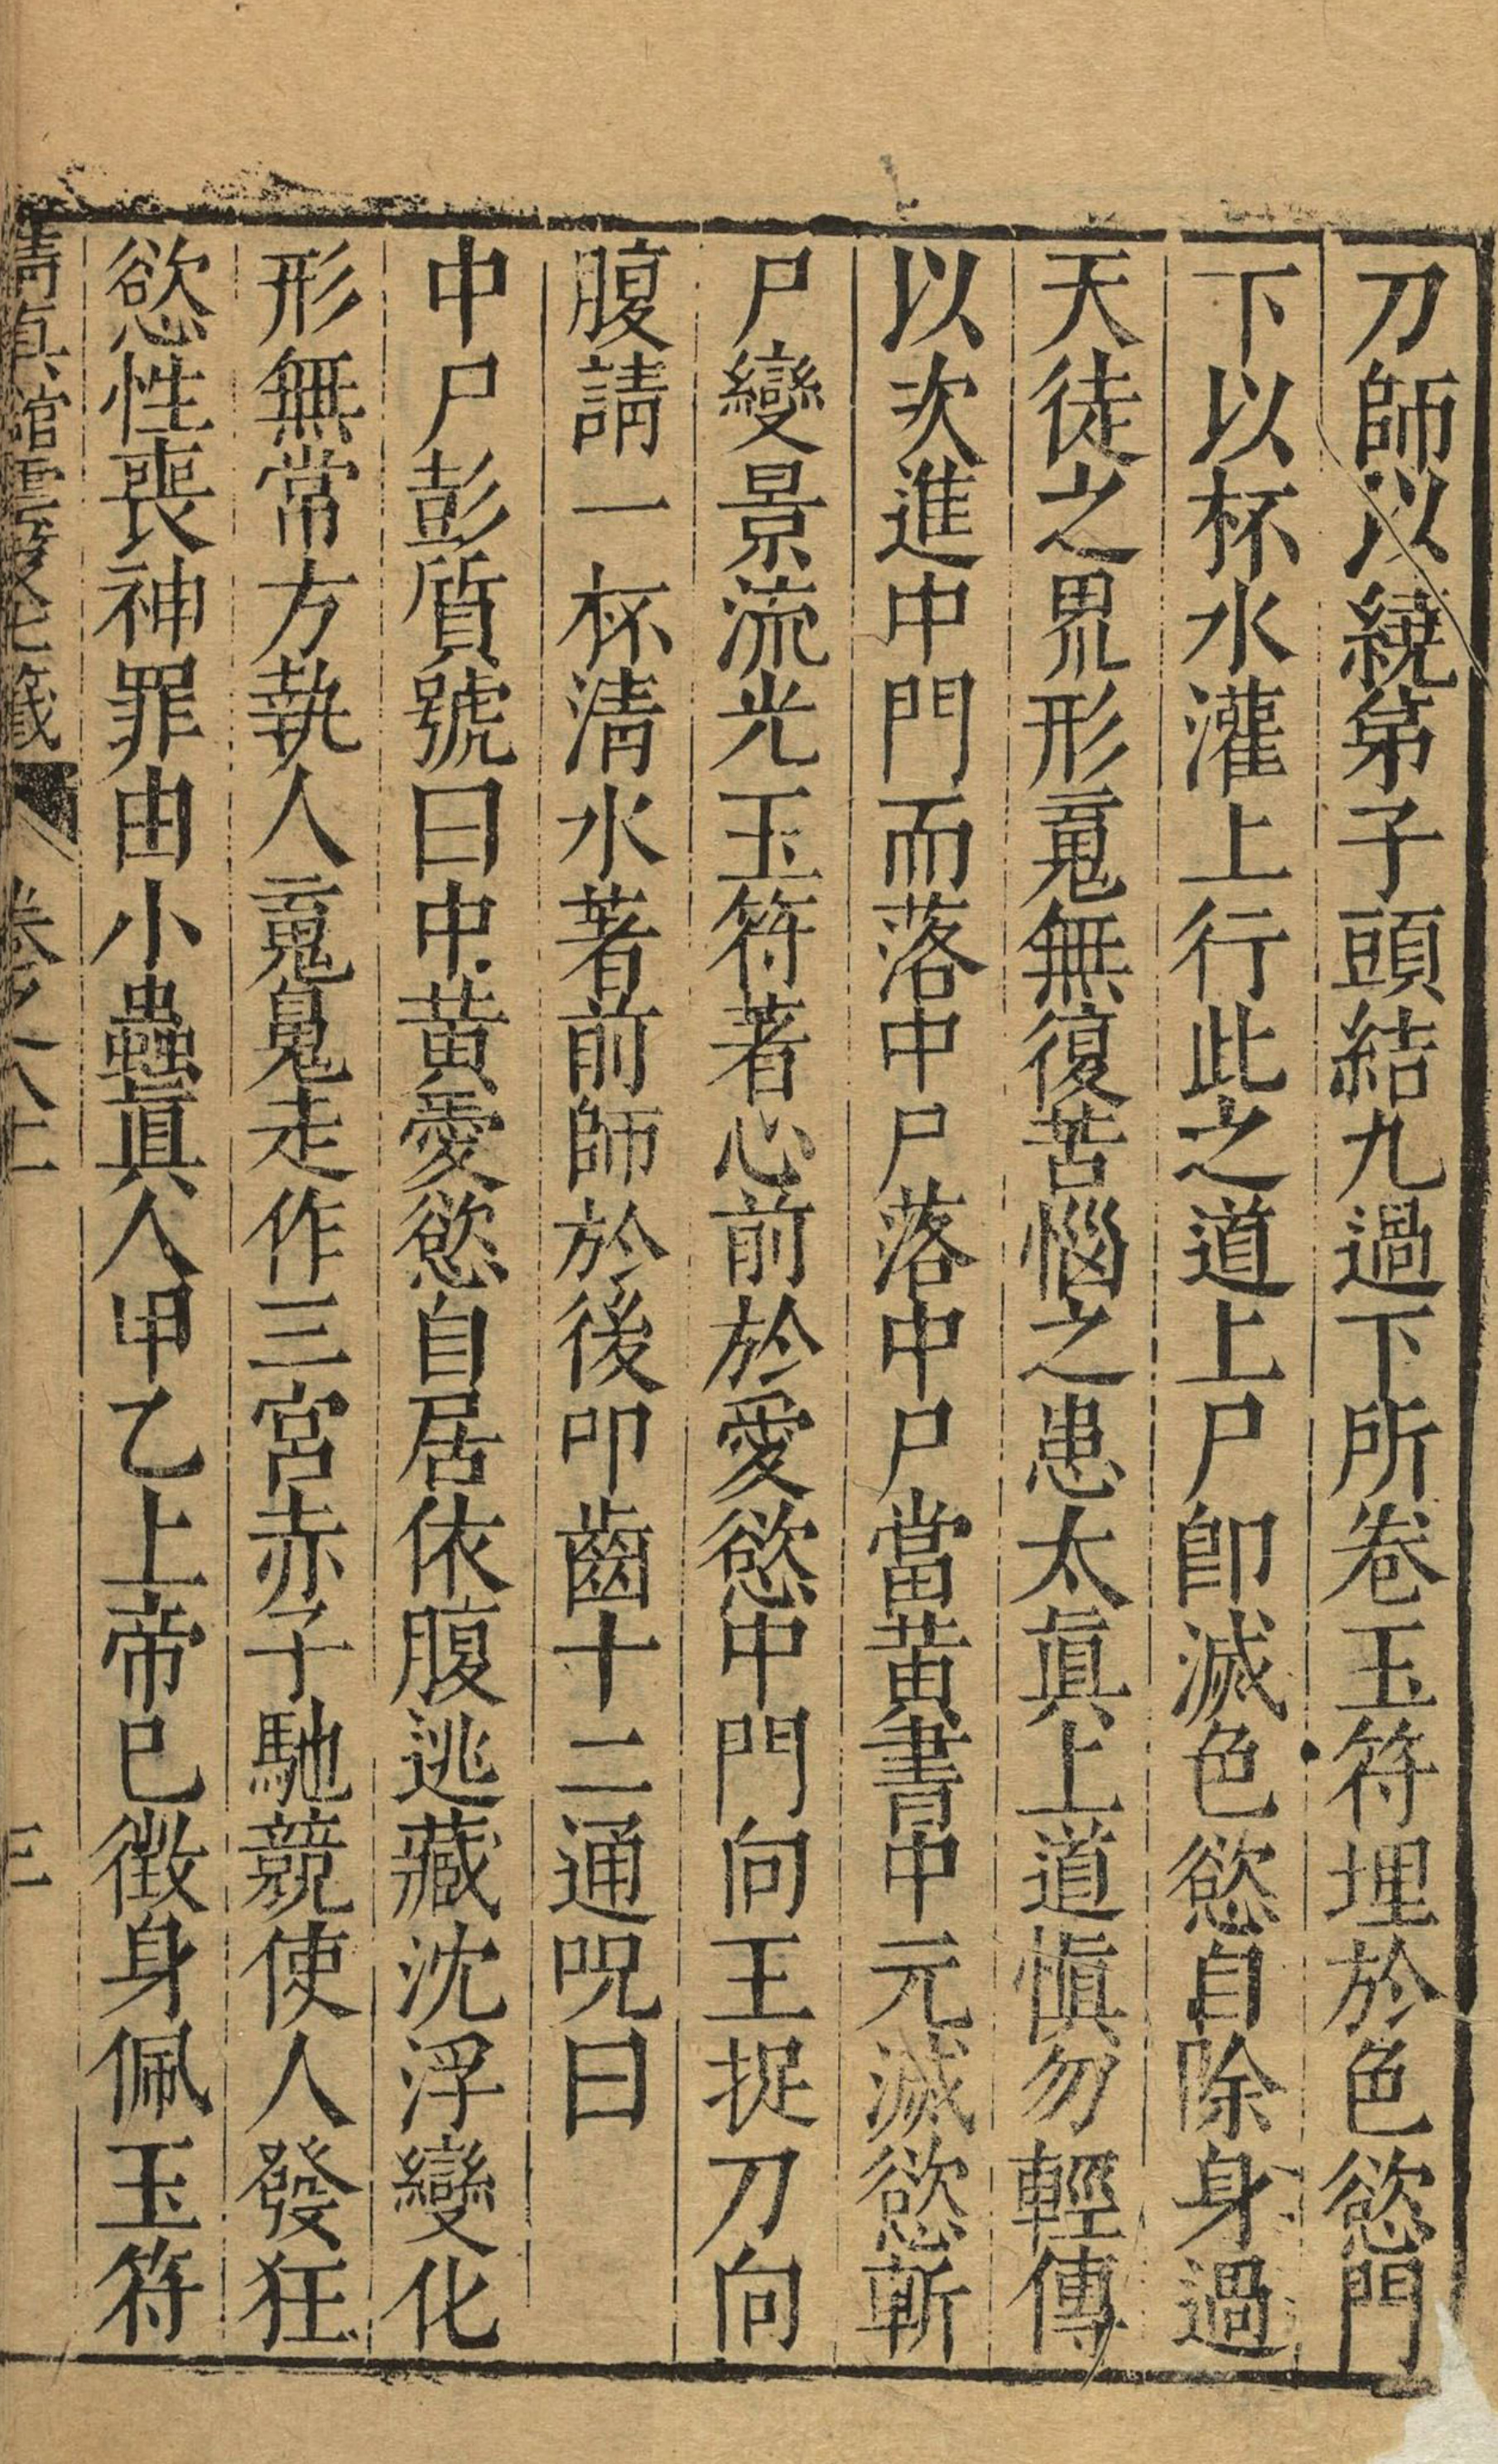 刀師以繞弟子頭結九過下所卷玉符埋於色慾門
下以杯水灌上行此之道上尸卽滅色慾自除身過
天徒之界形䰟無復苦惱之患太眞上道愼勿輕傳
以次進中門而落中尸落中尸當黃書中元滅慾斬
尸變景流光玉符著心前於愛慾中門向王捉刀向
腹請一杯淸水著前師於後叩齒十二通呪曰
中尸彭質號曰中黃愛慾自居依腹逃藏沈浮變化
形無常方執人䰟鬼走作三宮赤子馳競使人發狂
慾性喪神罪由小蟲眞人甲乙上帝巳徵身佩玉符
淸真館雲笈七籤 卷之八上 三